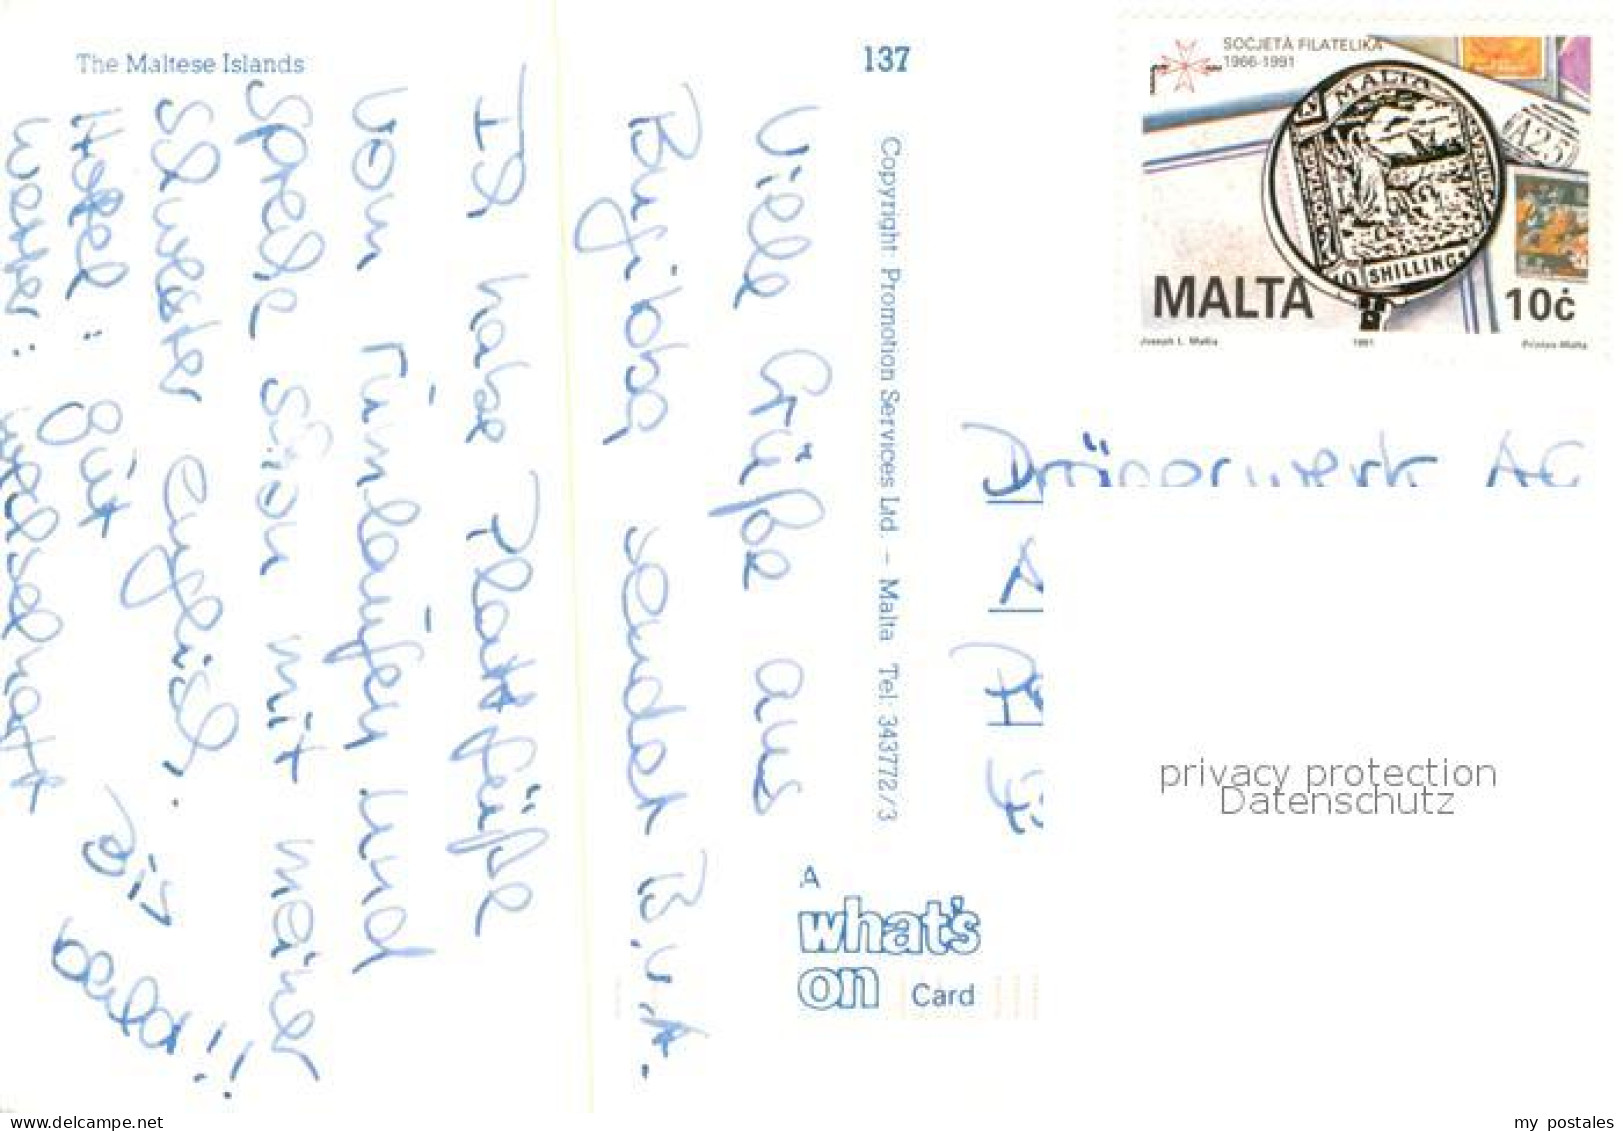 The Maltese Islands
137
SOĊJETÀ FILATELIKA
1966-1991
MALTA
POSTAGE
REVENUE
10 SHILLINGS
A25
MALTA
10ċ
Joseph L. Mallia
1991
Printex Malta
Viele Grüße aus
Bugibba, sendet B.
Ich habe Plattfüße
vom Rumlaufen und
spreche schon mit meiner
Schwester englisch.
Hotel: gut
Wetter: wechselhaft
Bis bald!!
Copyright: Promotion Services Ltd. – Malta Tel: 343772/3
A
what's
on Card
Drägerwerk AG
privacy protection
Datenschutz
www.delcampe.net
my_postales